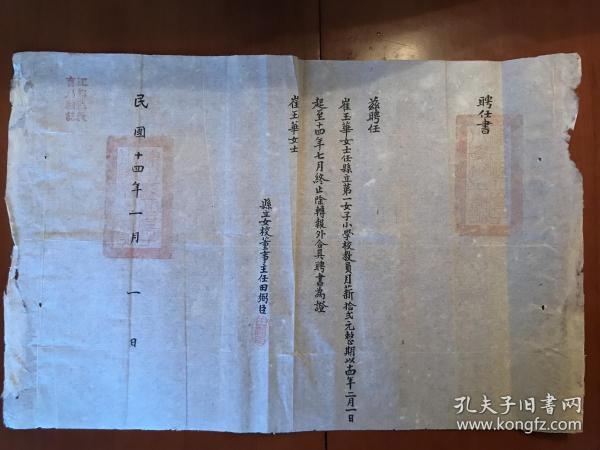 聘任書
茲聘任
崔玉華女士任縣立第一女子小學校教員月薪拾弍元整期以十四年二月一日
起至十四年七月終止除轉報外合具聘書為證
崔玉華女士
縣立女校董事主任田弼臣
民國十四年一月一日
孔夫子旧書网
www.kongfz.com